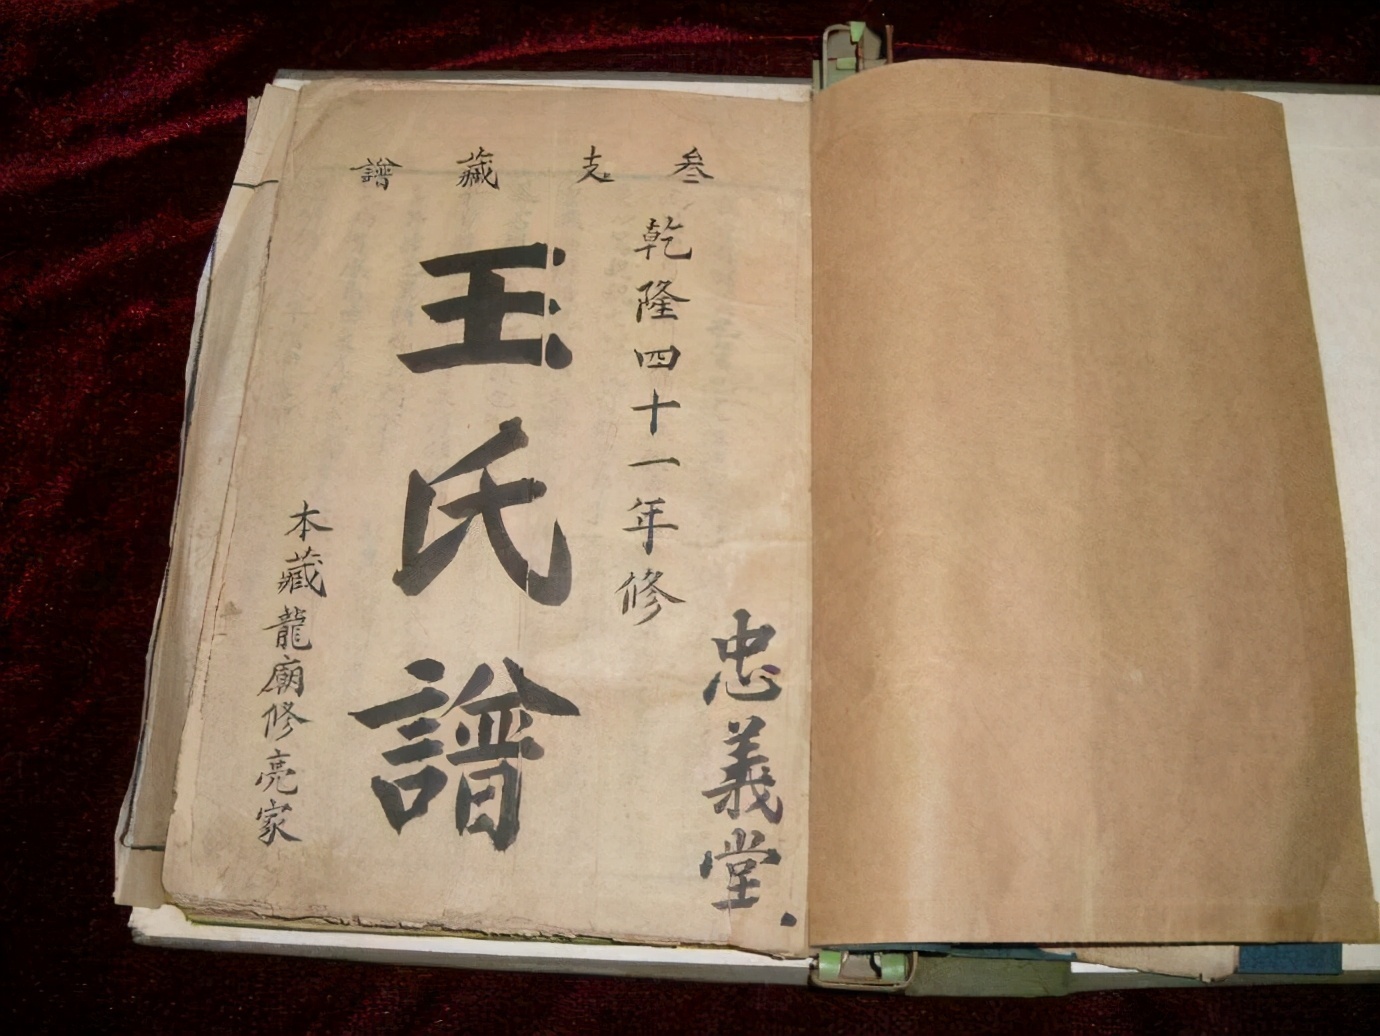 叁支藏譜
忠義堂
乾隆四十一年修
王氏譜
本藏龍廟修亮家